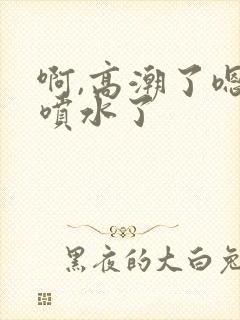 啊,高潮了嗯
喷水了
黑夜的大白兔